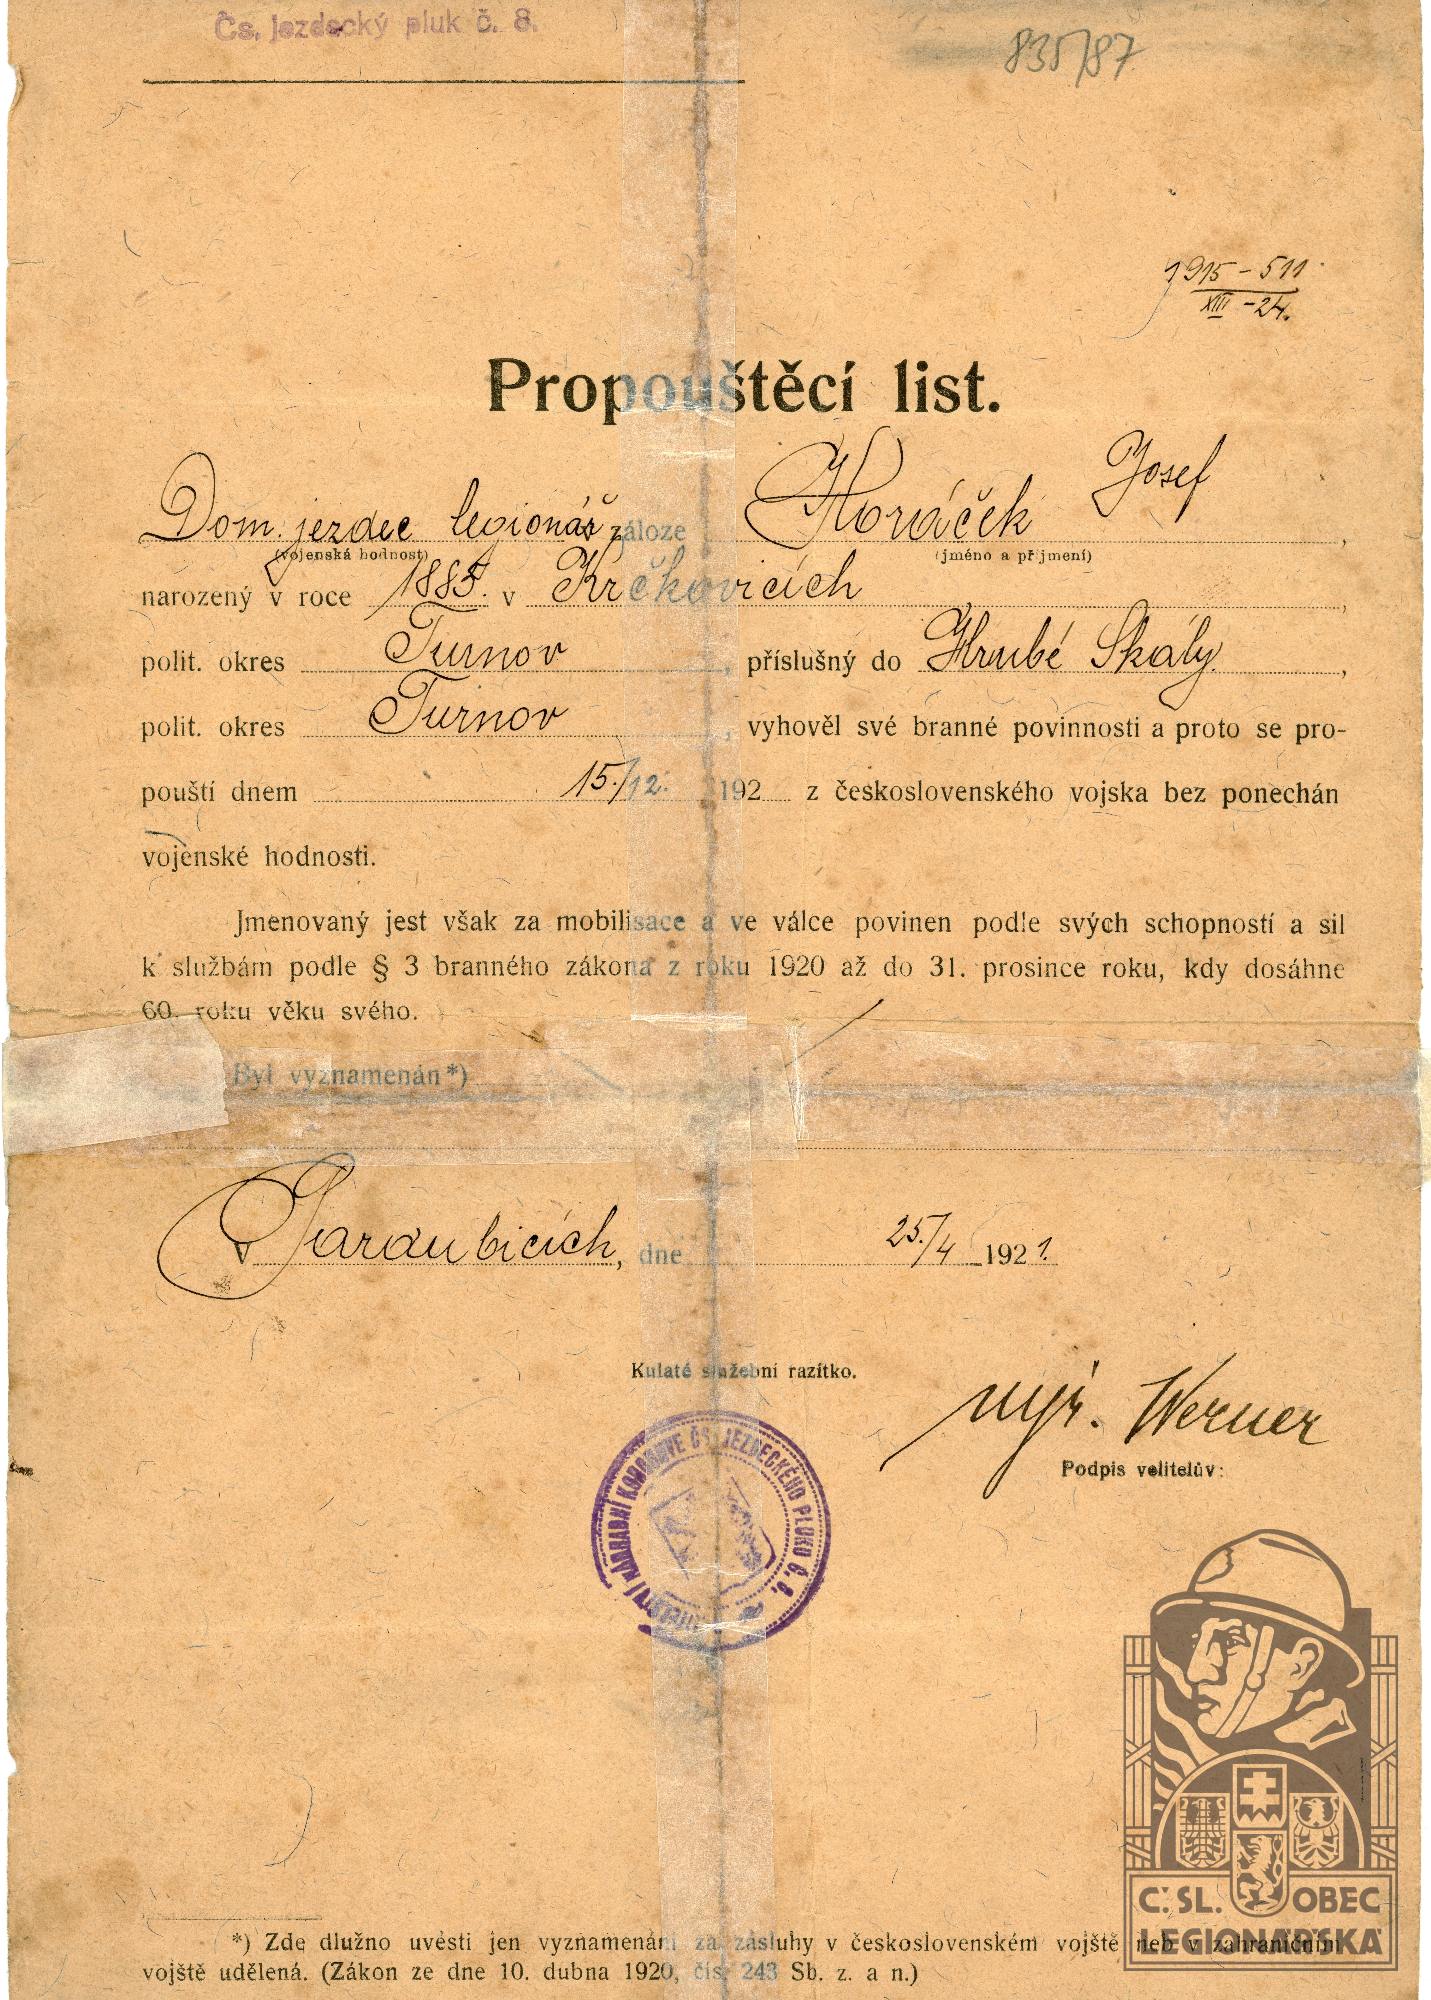 Čs. jezdecký pluk č. 8.
835/87
1915 - 511
XIII - 24.
Propouštěcí list.
Dom. jezdec legionář záloze Horáček Josef,
(vojenská hodnost) (jméno a příjmení)
narozený v roce 1885. v Krčkovicích,
polit. okres Turnov, příslušný do Hrubé Skály,
polit. okres Turnov, vyhověl své branné povinnosti a proto se pro-
pouští dnem 15./12. 192 z československého vojska bez ponechán
vojenské hodnosti.
Jmenovaný jest však za mobilisace a ve válce povinen podle svých schopností a sil
k službám podle § 3 branného zákona z roku 1920 až do 31. prosince roku, kdy dosáhne
60. roku věku svého.
Byl vyznamenán*)
V Pardubicích, dne 25./4 1921.
Kulaté služební razítko.
mjr. Werner
Podpis velitelův:
NÁHRADNÍ ČS. JEZDECKÉHO PLUKU Č. 8.
Č. SL. OBEC
LEGIONÁŘSKÁ
*) Zde dlužno uvésti jen vyznamenání za zásluhy v československém vojště neb v zahraničním
vojště udělená. (Zákon ze dne 10. dubna 1920, čís. 243 Sb. z. a n.)